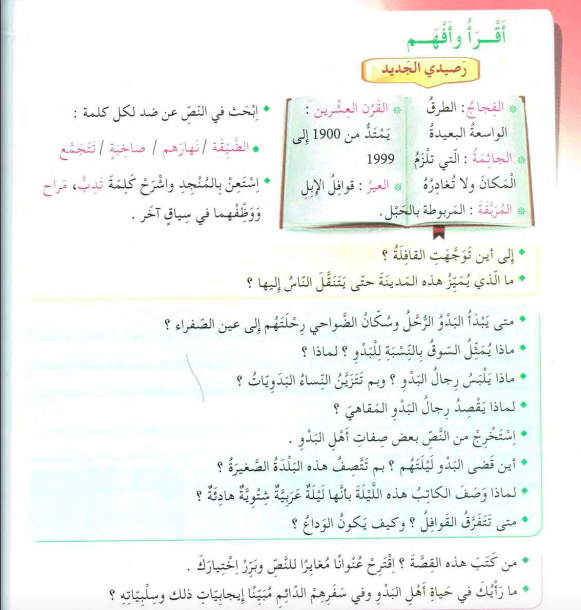 أَقْــرَأُ وأَفْهَــم
رَصيدي الجَديد
الفِجاجُ : الطرقُ
الواسعةُ البعيدةُ
الجاثِمَةُ : الّتي تلْزَمُ
الْمَكانَ ولا تُغادِرُهُ
المُرَبْقَةَ : المَربوطة بالحَبْل.
القَرْن العِشْرين :
يَمْتَدُّ من 1900 إلى
1999
العيرُ : قوافِلُ الإبِلِ
اِبْحَث في النّصِّ عن ضد لكل كلمة :
الضَّيِّقَة / نَهارَهم / صاخِبَةٍ / تَتَجَمَّع
اِسْتَعِنْ بِالمُنْجِدِ واشْرَحْ كَلِمَةَ تَدِبُّ، مَراح
وَوَظِّفْهما في سِياقٍ آخَر .
إلى أين تَوَجَّهَتِ القافِلَةُ ؟
ما الّذي يُمَيِّزُ هذه المَدينَةَ حتّى يَتَنَقَّلَ النّاسُ إليها ؟
متى يَبْدَأُ البَدْوُ الرُّحَّلُ وسُكّانُ الضَّواحي رِحْلَتَهُم إلى عين الصّفراء ؟
ماذا يُمَثِّلُ السّوقُ بِالنّسْبَةِ لِلْبَدْوِ ؟ لماذا ؟
ماذا يَلْبَسُ رِجالُ البَدْوِ ؟ وبم تَتَزَيَّنُ النّساءُ البَدَوِيّاتُ ؟
لماذا يَقْصِدُ رِجالُ البَدْوِ المَقاهيَ ؟
اِسْتَخْرِجْ من النَّصِّ بعض صِفاتِ أَهْلِ البَدْوِ .
أين قَضى البَدْو لَيْلَتَهُم ؟ بم تَتَّصِفُ هذه البَلْدَةُ الصَّغيرَةُ ؟
لماذا وَصَفَ الكاتِبُ هذه اللَّيْلَةَ بأنّها لَيْلَةٌ عَرَبِيَّةٌ شِتْوِيَّةٌ هادِئَةٌ ؟
متى تَتَفَرَّقُ القَوافِلُ ؟ وكيف يَكونُ الوَداعُ ؟
من كَتَبَ هذه القِصَّةَ ؟ اِقْتَرِحْ عُنْوانًا مُغايِرًا للنَّصِّ وبَرِّرْ اِخْتِيارَكَ .
ما رَأْيُكَ في حَياةِ أَهْلِ البَدْوِ وفي سَفَرِهِمْ الدّائِمِ مُبَيِّنًا إيجابِيّاتِ ذلك وسِلْبِيّاتِهِ ؟